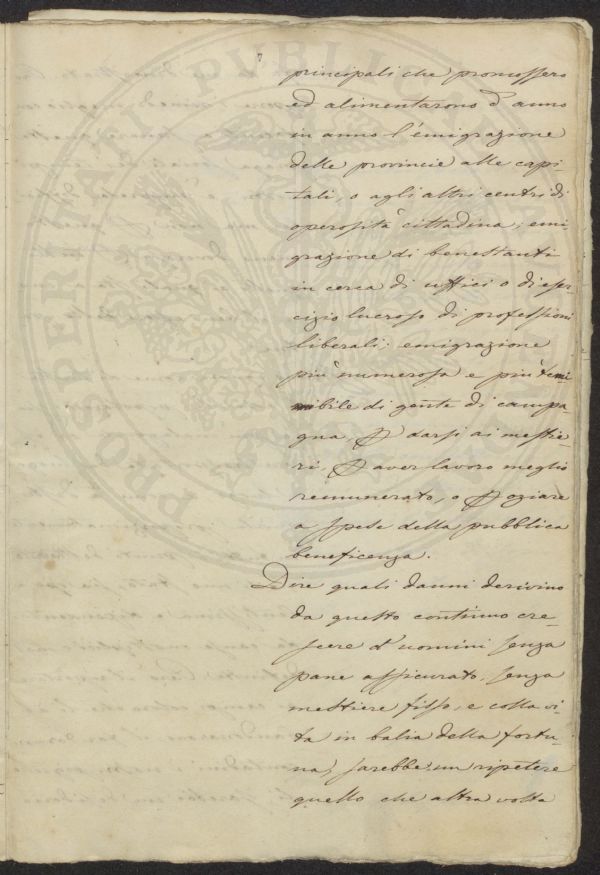 principali che promossero
ed alimentarono d'anno
in anno l'emigrazione
delle provincie alle capi-
tali, o agli altri centri di
operosità cittadina; emi-
grazione di benestanti
in cerca di uffici o di eser-
cizio lucroso di professioni
liberali; emigrazione
più numerosa e più temi
nibile di gente di campa-
gna, P darsi ai mestie-
ri, P aver lavoro meglio
remunerato, o P oziare
a spese della pubblica
beneficenza.
Dire quali danni derivino
da questo continuo cre-
scere d'uomini senza
pane assicurato, senza
mestiere fisso, e colla vi-
ta in balia della fortu-
na, sarebbe un ripetere
quello che altra volta
PROSPERITATI PUBLICAE